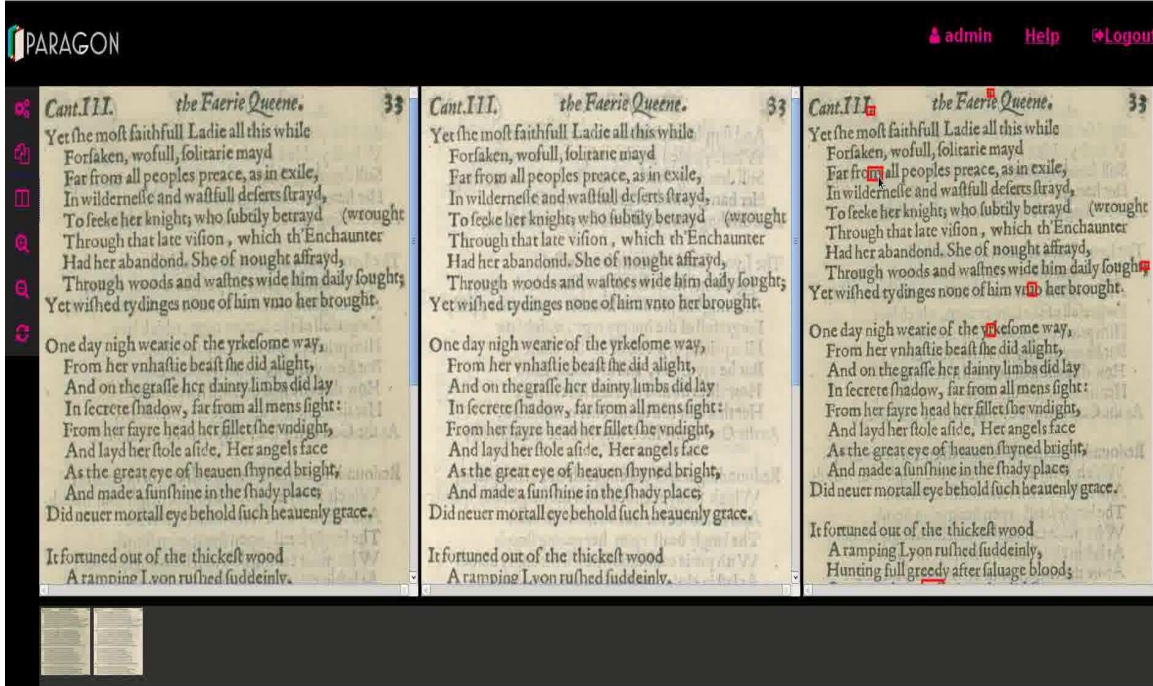 PARAGON
admin Help Logout
Cant.III. the Faerie Queene. 33
Yet ſhe moſt faithfull Ladie all this while
Forſaken, wofull, ſolitarie mayd
Far from all peoples preace, as in exile,
In wilderneſſe and waſtfull deſerts ſtrayd,
To ſeeke her knight; who ſubtily betrayd (wrought
Through that late viſion, which th'Enchaunter
Had her abandond. She of nought affrayd,
Through woods and waſtnes wide him daily ſought;
Yet wiſhed tydinges none of him vnto her brought.
One day nigh wearie of the yrkeſome way,
From her vnhaſtie beaſt ſhe did alight,
And on the graſſe her dainty limbs did lay
In ſecrete ſhadow, far from all mens ſight:
From her fayre head her fillet ſhe vndight,
And layd her ſtole aſide, Her angels face
As the great eye of heauen ſhyned bright,
And made a ſunſhine in the ſhady place;
Did neuer mortall eye behold ſuch heauenly grace.
It fortuned out of the thickeſt wood
A ramping Lyon ruſhed ſuddeinly,
Cant.III. the Faerie Queene. 33
Yet ſhe moſt faithfull Ladie all this while
Forſaken, wofull, ſolitarie mayd
Far from all peoples preace, as in exile,
In wilderneſſe and waſtfull deſerts ſtrayd,
To ſeeke her knight; who ſubtily betrayd (wrought
Through that late viſion, which th'Enchaunter
Had her abandond. She of nought affrayd,
Through woods and waſtnes wide him daily ſought;
Yet wiſhed tydinges none of him vnto her brought.
One day nigh wearie of the yrkeſome way,
From her vnhaſtie beaſt ſhe did alight,
And on the graſſe her dainty limbs did lay
In ſecrete ſhadow, far from all mens ſight:
From her fayre head her fillet ſhe vndight,
And layd her ſtole aſide, Her angels face
As the great eye of heauen ſhyned bright,
And made a ſunſhine in the ſhady place;
Did neuer mortall eye behold ſuch heauenly grace.
It fortuned out of the thickeſt wood
A ramping Lyon ruſhed ſuddeinly,
Cant.III. the Faerie Queene. 33
Yet ſhe moſt faithfull Ladie all this while
Forſaken, wofull, ſolitarie mayd
Far from all peoples preace, as in exile,
In wilderneſſe and waſtfull deſerts ſtrayd,
To ſeeke her knight; who ſubtily betrayd (wrought
Through that late viſion, which th'Enchaunter
Had her abandond. She of nought affrayd,
Through woods and waſtnes wide him daily ſought;
Yet wiſhed tydinges none of him vnto her brought.
One day nigh wearie of the yrkeſome way,
From her vnhaſtie beaſt ſhe did alight,
And on the graſſe her dainty limbs did lay
In ſecrete ſhadow, far from all mens ſight:
From her fayre head her fillet ſhe vndight,
And layd her ſtole aſide, Her angels face
As the great eye of heauen ſhyned bright,
And made a ſunſhine in the ſhady place;
Did neuer mortall eye behold ſuch heauenly grace.
It fortuned out of the thickeſt wood
A ramping Lyon ruſhed ſuddeinly,
Hunting full greedy after ſaluage blood;